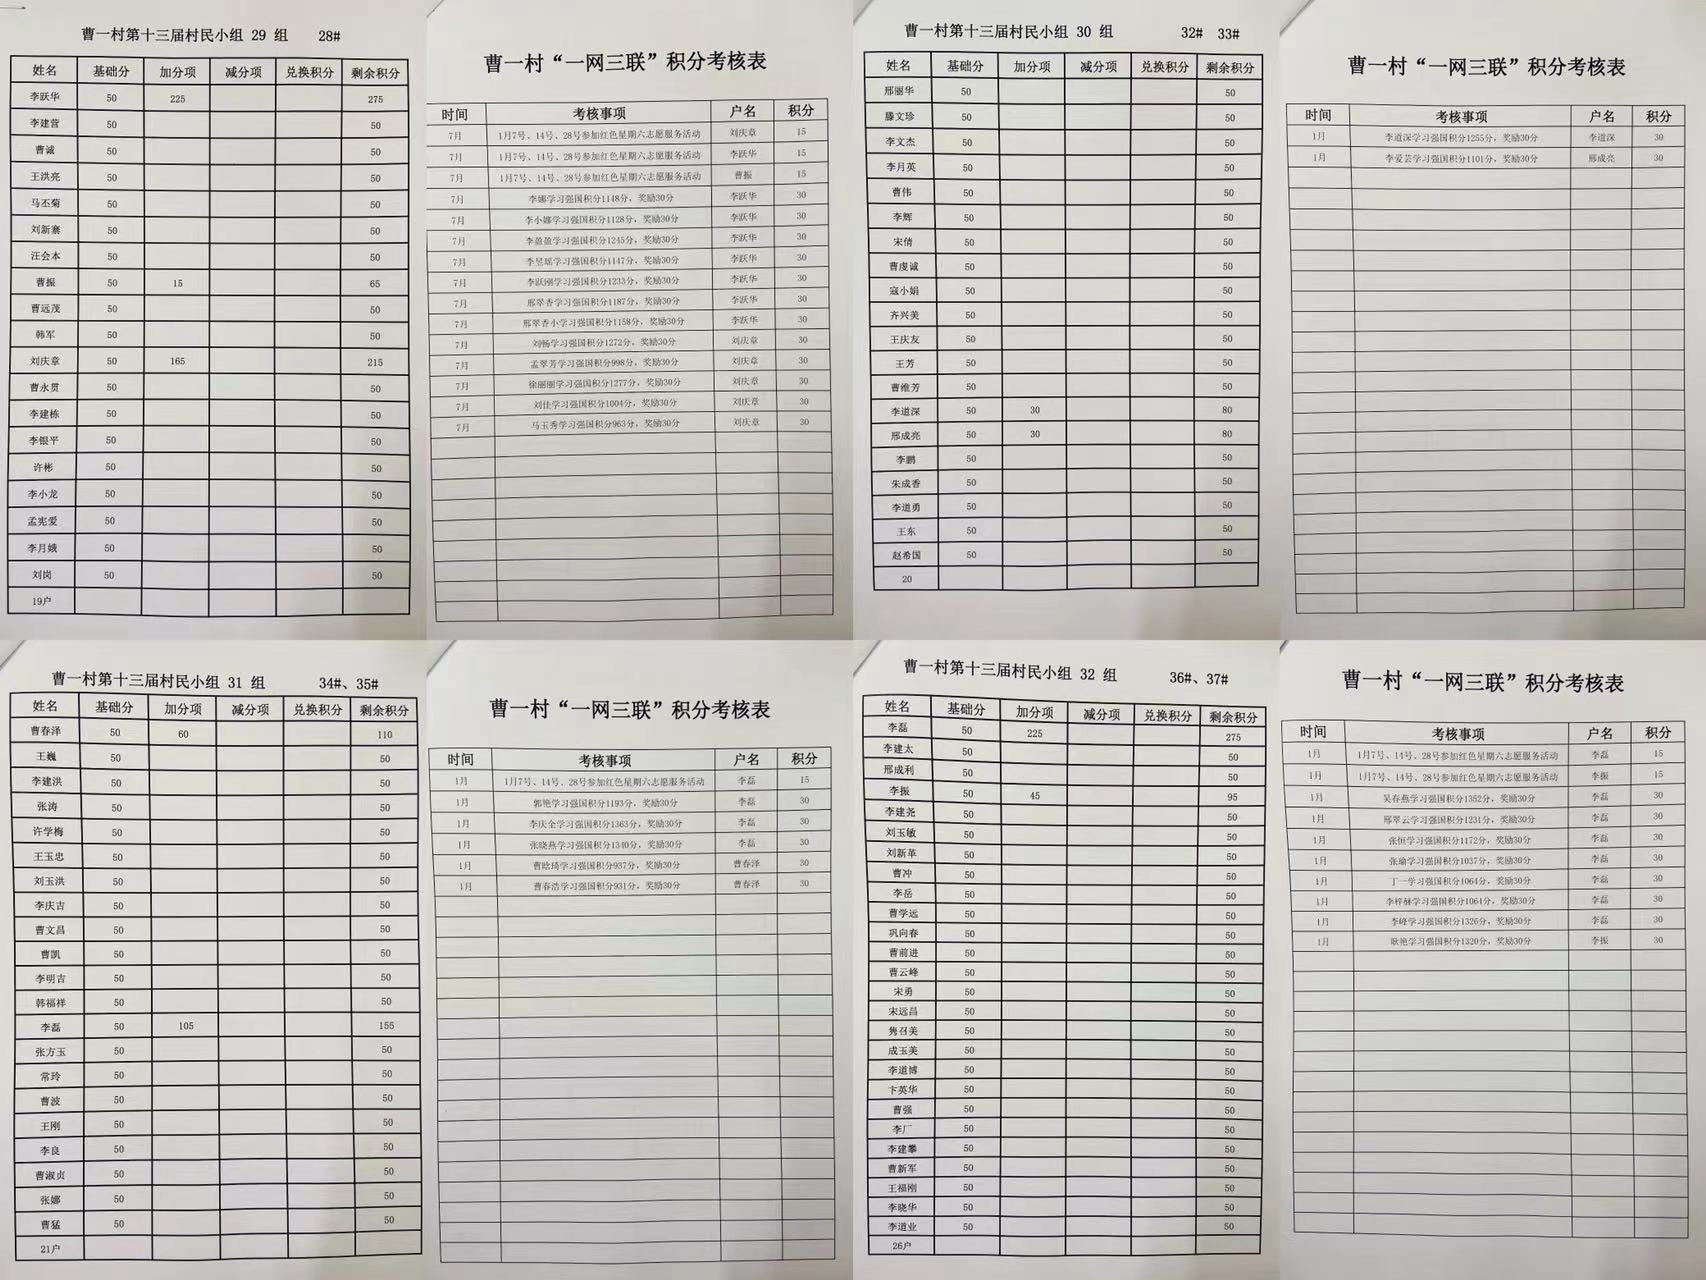 曹一村第十三届村民小组 29 组 28#
姓名 基础分 加分项 减分项 兑换积分 剩余积分
李跃华 50 225 275
李建营 50 50
曹诚 50 50
王洪亮 50 50
马丕菊 50 50
刘新寨 50 50
汪会本 50 50
曹振 50 15 65
曹远茂 50 50
韩军 50 50
刘庆章 50 165 215
曹永贯 50 50
李建栋 50 50
李银平 50 50
许彬 50 50
李小龙 50 50
孟宪爱 50 50
李月娥 50 50
刘岗 50 50
19户
曹一村“一网三联”积分考核表
时间 考核事项 户名 积分
7月 1月7号、14号、28号参加红色星期六志愿服务活动 刘庆章 15
7月 1月7号、14号、28号参加红色星期六志愿服务活动 李跃华 15
7月 1月7号、14号、28号参加红色星期六志愿服务活动 曹振 15
7月 李娜学习强国积分1148分，奖励30分 李跃华 30
7月 李小娜学习强国积分1128分，奖励30分 李跃华 30
7月 李盈盈学习强国积分1245分，奖励30分 李跃华 30
7月 李昱瑶学习强国积分1147分，奖励30分 李跃华 30
7月 李跃刚学习强国积分1233分，奖励30分 李跃华 30
7月 邢翠香学习强国积分1187分，奖励30分 李跃华 30
7月 邢翠香小学习强国积分1158分，奖励30分 李跃华 30
7月 刘畅学习强国积分1272分，奖励30分 刘庆章 30
7月 孟翠芳学习强国积分998分，奖励30分 刘庆章 30
7月 徐丽丽学习强国积分1277分，奖励30分 刘庆章 30
7月 刘佳学习强国积分1004分，奖励30分 刘庆章 30
7月 马玉秀学习强国积分963分，奖励30分 刘庆章 30
曹一村第十三届村民小组 30 组 32# 33#
姓名 基础分 加分项 减分项 兑换积分 剩余积分
邢丽华 50 50
滕文珍 50 50
李文杰 50 50
李月英 50 50
曹伟 50 50
李辉 50 50
宋倩 50 50
曹虔诚 50 50
寇小娟 50 50
齐兴美 50 50
王庆友 50 50
王芳 50 50
曹维芳 50 50
李道深 50 30 80
邢成亮 50 30 80
李鹏 50 50
朱成香 50 50
李道勇 50 50
王东 50 50
赵希国 50 50
20
曹一村“一网三联”积分考核表
时间 考核事项 户名 积分
1月 李道深学习强国积分1255分，奖励30分 李道深 30
1月 李爱芸学习强国积分1101分，奖励30分 邢成亮 30
曹一村第十三届村民小组 31 组 34#、35#
姓名 基础分 加分项 减分项 兑换积分 剩余积分
曹春泽 50 60 110
王巍 50 50
李建洪 50 50
张涛 50 50
许学梅 50 50
王玉忠 50 50
刘玉洪 50 50
李庆吉 50 50
曹文昌 50 50
曹凯 50 50
李明吉 50 50
韩福祥 50 50
李磊 50 105 155
张方玉 50 50
常玲 50 50
曹波 50 50
王刚 50 50
李良 50 50
曹淑贞 50 50
张娜 50 50
曹猛 50 50
21户
曹一村“一网三联”积分考核表
时间 考核事项 户名 积分
1月 1月7号、14号、28号参加红色星期六志愿服务活动 李磊 15
1月 郭艳学习强国积分1193分，奖励30分 李磊 30
1月 李庆全学习强国积分1363分，奖励30分 李磊 30
1月 张晓燕学习强国积分1340分，奖励30分 李磊 30
1月 曹晗琦学习强国积分937分，奖励30分 曹春泽 30
1月 曹春浩学习强国积分931分，奖励30分 曹春泽 30
曹一村第十三届村民小组 32 组 36#、37#
姓名 基础分 加分项 减分项 兑换积分 剩余积分
李磊 50 225 275
李建太 50 50
邢成利 50 50
李振 50 45 95
李建尧 50 50
刘玉敏 50 50
刘新革 50 50
曹冲 50 50
李岳 50 50
曹学远 50 50
巩向春 50 50
曹前进 50 50
曹云峰 50 50
宋勇 50 50
宋远昌 50 50
隽召美 50 50
成玉美 50 50
李道博 50 50
卞英华 50 50
曹强 50 50
李厂 50 50
李建攀 50 50
曹新军 50 50
王福刚 50 50
李晓华 50 50
李道业 50 50
26户
曹一村“一网三联”积分考核表
时间 考核事项 户名 积分
1月 1月7号、14号、28号参加红色星期六志愿服务活动 李磊 15
1月 1月7号、14号、28号参加红色星期六志愿服务活动 李振 15
1月 吴春燕学习强国积分1352分，奖励30分 李磊 30
1月 邢翠云学习强国积分1231分，奖励30分 李磊 30
1月 张恒学习强国积分1172分，奖励30分 李磊 30
1月 张瑜学习强国积分1037分，奖励30分 李磊 30
1月 丁一学习强国积分1064分，奖励30分 李磊 30
1月 李梓赫学习强国积分1064分，奖励30分 李磊 30
1月 李峰学习强国积分1326分，奖励30分 李磊 30
1月 耿艳学习强国积分1320分，奖励30分 李振 30